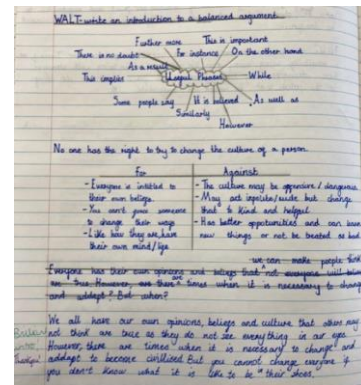 WALT-write an introduction to a balanced argument.
Further more This is important
There is no doubt For instance On the other hand
As a result
This implies Useful Phrases While
Some people say It is believed As well as
Similarly
However
No one has the right to try to change the culture of a person.
For Against
- Everyone is entitled to - The culture may be offensive / dangerous
their own beliefs - May act impolite/rude but change
- You can't force someone that to kind and helpful
to change their ways - Has better opportunities and can learn
- Like how they are, have new things or not be treated as bad
their own mind/life
we can make people think
Everyone has their own opinions and beliefs that not everyone will
are true However, are there times when it is necessary to change
and addapt? But when?
We all have our own opinions, beliefs and culture that others may
not think are true as they do not see everything in our eyes.
However, there are times when it is necessary to change and
addapt to become civillised But you cannot change everyone if
you don't know what it is like to be in their shoes.